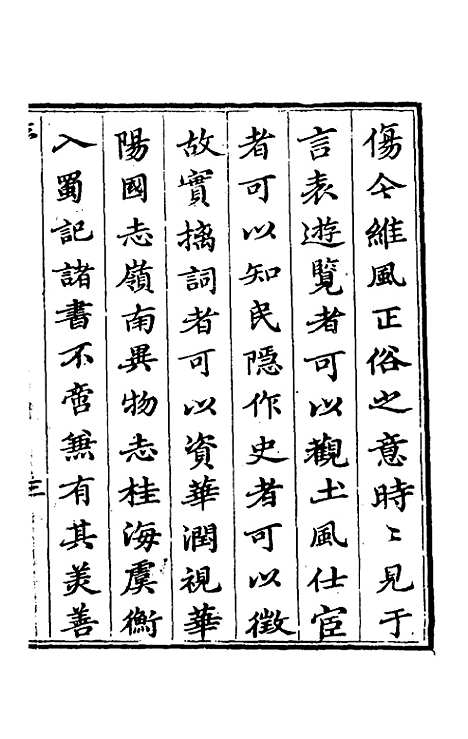 傷今維風正俗之意時〻見于
言表遊覽者可以觀土風仕宦
者可以知民隱作史者可以徵
故實摛詞者可以資華潤視華
陽國志嶺南異物志桂海虞衡
入蜀記諸書不啻兼有其美善
三